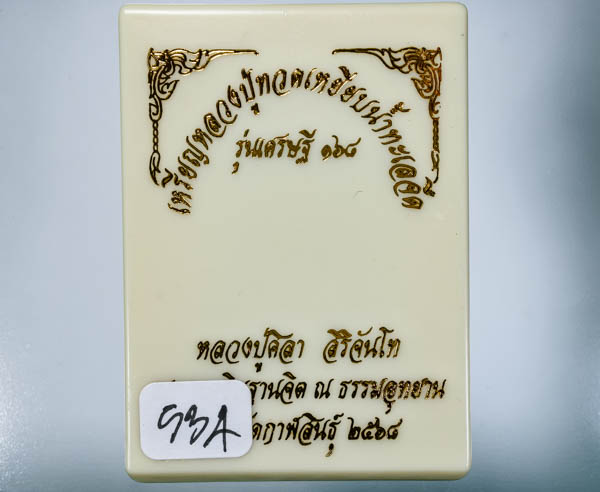 เหรียญหลวงปู่ทวดเหยียบน้ำทะเลจืด
รุ่นเศรษฐี ๑๖๘
หลวงปู่ศิลา สิริจันโท
ฐานจิต ณ ธรรมอุทยาน
กาฬสินธุ์ ๒๕๖๘